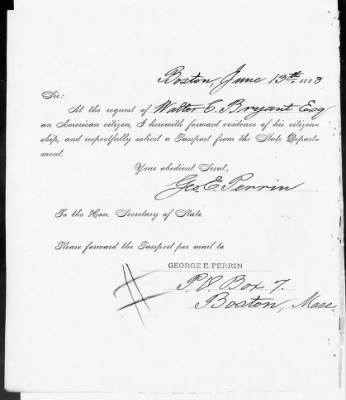 Boston, June 13th 1883
Sir:
At the request of Walter E. Bryant Esq
an American citizen, I herewith forward evidence of his citizen-
ship, and respectfully solicit a Passport from the State Depart-
ment.
Your obedient Servt,
Geo. E. Perrin
To the Hon. Secretary of State.
Please forward the Passport per mail to
GEORGE E. PERRIN
P.O. Box 7.
Boston, Mass.